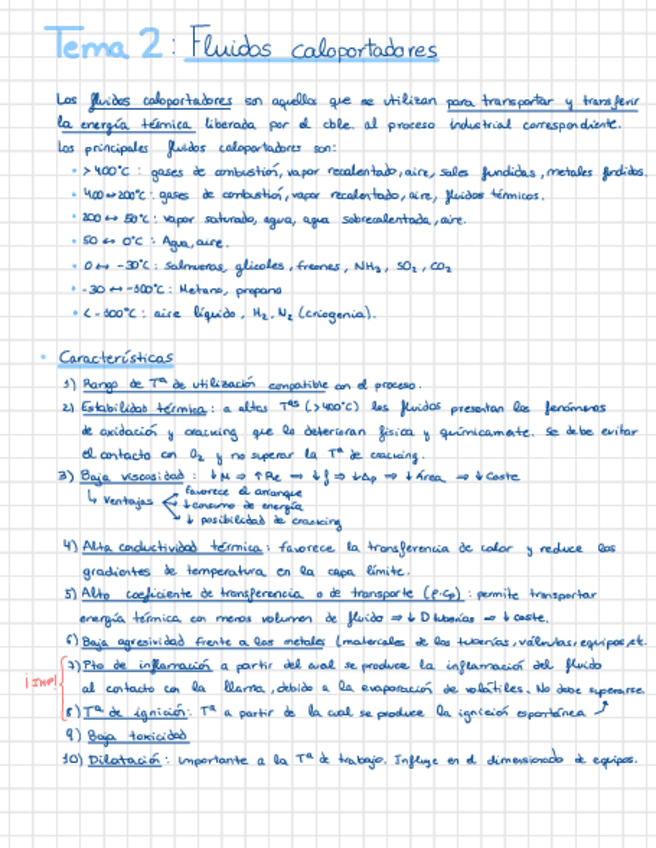 Tema 2: Fluidos caloportadores
Los fluidos caloportadores son aquellos que se utilizan para transportar y transferir
la energía térmica liberada por el cble. al proceso industrial correspondiente.
Los principales fluidos caloportadores son:
• >400°C: gases de combustión, vapor recalentado, aire, sales fundidas, metales fundidos.
• 400↔200°C: gases de combustión, vapor recalentado, aire, fluidos térmicos.
• 200↔50°C: vapor saturado, agua, agua sobrecalentada, aire.
• 50↔0°C: Agua, aire.
• 0↔-30°C: Salmueras, glicoles, freones, NH3, SO2, CO2
• -30↔-100°C: Metano, propano
• <-100°C: aire líquido, H2, N2 (criogenia).
• Características
1) Rango de Tª de utilización compatible con el proceso.
2) Estabilidad térmica: a altas Tªs (>400°C) los fluidos presentan los fenómenos
de oxidación y cracking que lo deterioran física y químicamente. Se debe evitar
el contacto con O2 y no superar la Tª de cracking.
3) Baja viscosidad: ↓μ ⇒ ↑Re ⇒ ↓f ⇒ ↓Δp ⇒ ↓Área ⇒ ↓Coste
↳ Ventajas favorece el arranque
↓consumo de energía
↓ posibilidad de cracking
4) Alta conductividad térmica: favorece la transferencia de calor y reduce los
gradientes de temperatura en la capa límite.
5) Alto coeficiente de transferencia o de transporte (ρ·Cp): permite transportar
energía térmica con menos volumen de fluido ⇒ ↓ D tuberías ⇒ ↓ coste.
6) Baja agresividad frente a los metales (materiales de las tuberías, válvulas, equipos, etc.
¡IMP! 7) Pto de inflamación a partir del cual se produce la inflamación del fluido
al contacto con la llama, debido a la evaporación de volátiles. No debe superarse.
8) Tª de ignición: Tª a partir de la cual se produce la ignición espontánea
9) Baja toxicidad
10) Dilatación: importante a la Tª de trabajo. Influye en el dimensionado de equipos.